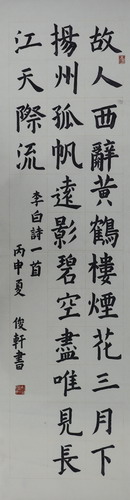 故人西辭黃鶴樓煙花三月下
揚州孤帆遠影碧空盡唯見長
江天際流
李白詩一首
丙申夏
俊軒書